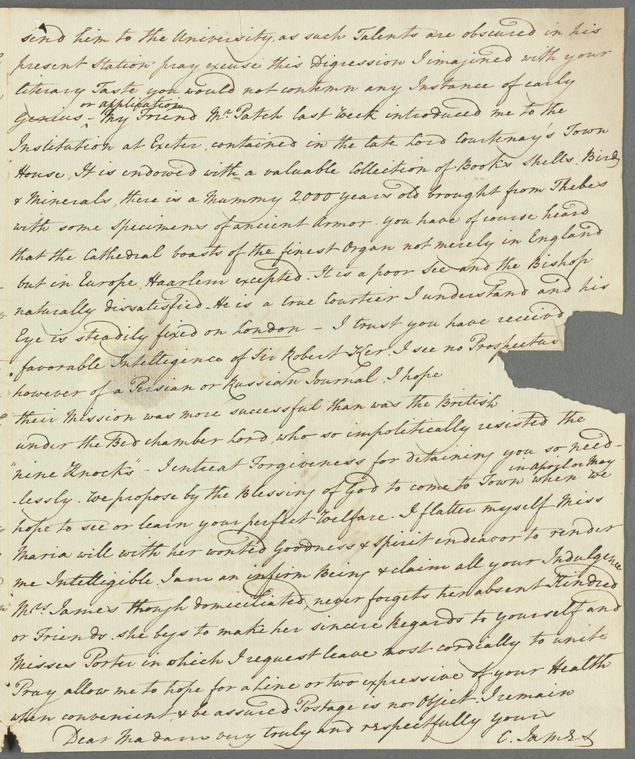 send him to the University, as such Talents are obscured in his
present Station pray excuse this Digression I imagined with your
literary Taste you would not contemn any Instance of early
or application
Genius - My Friend Mr. Patch last Week introduced me to the
Institution at Exeter, contained in the late Lord Courtenay's Town
House. It is endowed with a valuable Collection of Books Shells, Birds
& Minerals, there is a Mummy 2000 years old brought from Thebes
with some specimens of ancient Armor. you have of course heard
that the Cathedral boasts of the finest Organ not merely in England
but in Europe, Haarlem excepted - It is a poor See and the Bishop
naturally dissatisfied - He is a true Courtier I understand and his
Eye is steadily fixed on London - I trust you have received
favorable Intelligence of Sir Robert Ker. I see no Prospectus
however of a Persian or Russian Journal. I hope
their Mission was more successful than was the British
under the Bed chamber Lord who so impolitically resisted the
"nine Knocks" - I entreat Forgiveness for detaining you so need-
in April or May
-lessly. We propose by the Blessing of God to come to Town when we
hope to see or learn your perfect Welfare. I flatter myself Miss
Maria will with her wonted Goodness & Spirit endeavor to render
me Intelligible. I am an infirm Being & claim all your Indulgence
Mrs James though domiciliated, never forgets her absent Kindred
or Friends. she begs to make her sincere Regards to yourself and
Misses Porter in which I request leave most cordially to unite
Pray allow me to hope for a Line or two expressive of your Health
when convenient & be assured Postage is no Object. I remain
Dear Madam very truly and respectfully yours
C. James